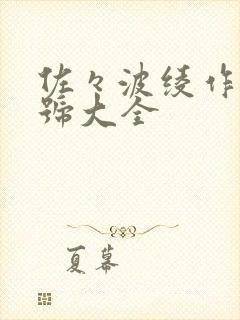 佐々波绫作
號大全
夏幕